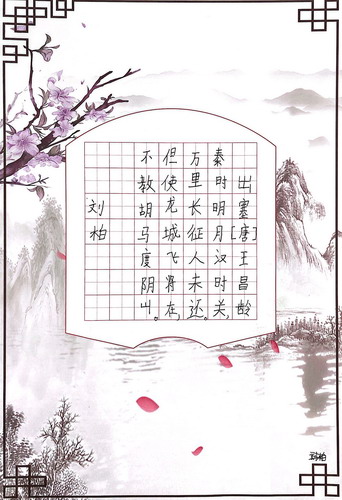 出塞[唐]王昌龄
秦时明月汉时关,
万里长征人未还。
但使龙城飞将在,
不教胡马度阴山。
刘柏